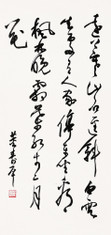 遠上寒山石徑斜白雲
生處有人家停車坐愛
楓林晚霜葉紅於二月
花